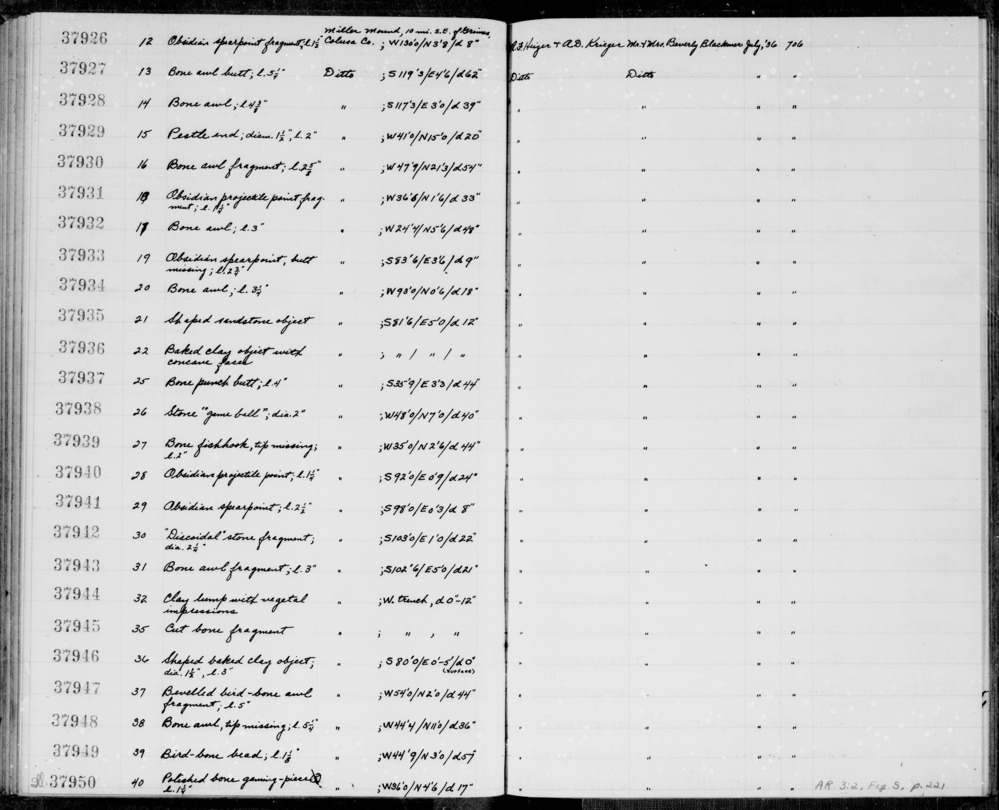 37926 12 Obsidian spearpoint fragment; l.1½" Miller Mound, 10 mi. S.E. of Grimes, Colusa Co. ; W130'0/N3'8/d 8" R.F. Heizer & A.D. Krieger Mr. & Mrs. Beverly Blackmer July, '36 706
37927 13 Bone awl butt; l. Ditto ; S119'3/E4'6/d62" Ditto Ditto " "
37928 14 Bone awl; " ; S117'3/E3'0/d39" " " " "
37929 15 Pestle end; diam. 1½", l. 2" " ; W41'0/N15'0/d20" " " " "
37930 16 Bone awl fragment; " ; W47'9/N21'3/d54" " " " "
37931 18 Obsidian projectile point frag- " ; W36'6/N1'6/d33" " " " "
ment;
37932 17 Bone awl; l.3" " ; W24'4/N5'6/d48" " " " "
37933 19 Obsidian spearpoint, butt " ; S83'6/E3'6/d9" " " " "
missing; l.2¾"
37934 20 Bone awl; l.3¼" " ; W93'0/N0'6/d18" " " " "
37935 21 Shaped sandstone object " ; S81'6/E5'0/d12" " " " "
37936 22 Baked clay object with " ; " / " / " " " " "
concave faces
37937 25 Bone punch butt; l.4" " ; S35'9/E3'3/d44" " " " "
37938 26 Stone "game ball"; dia.2" " ; W48'0/N7'0/d40" " " " "
37939 27 Bone fishhook, tip missing; " ; W35'0/N2'6/d44" " " " "
l.2"
37940 28 Obsidian projectile point; l.1¼" " ; S92'0/E0'9/d24" " " " "
37941 29 Obsidian spearpoint; l.2½" " ; S98'0/E0'3/d8" " " " "
37942 30 "Discoidal" stone fragment; " ; S103'0/E1'0/d22" " " " "
dia. 2¼"
37943 31 Bone awl fragment; l.3" " ; S102'6/E5'0/d21" " " " "
37944 32 Clay lump with vegetal " ; W. trench, d0"-12" " " " "
impressions
37945 35 Cut bone fragment " ; " , " " " " "
37946 36 Shaped baked clay object; " ; S80'0/E0'-5'/d0" " " " "
dia. 1½", l.3" (surface)
37947 37 Bevelled bird-bone awl " ; W54'0/N2'0/d44" " " " "
fragment; l.5"
37948 38 Bone awl, tip missing; l.5¼" " ; W44'4/N11'0/d36" " " " "
37949 39 Bird-bone bead; l.1½" " ; W44'9/N3'0/d57" " " " "
37950 40 Polished bone gaming-piece " ; W36'0/N4'6/d17" " " " " AR 3:2, Fig. 5, p.221
l.1¼"